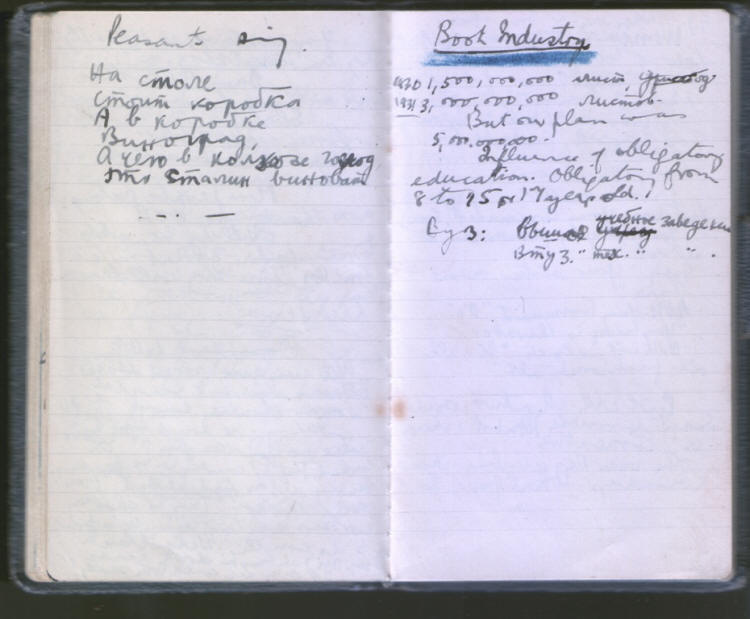 Peasants sing.
На столе
стоит коробка
А в коробке
Виноград,
А чего в колхозе голод
Это Сталин виноват
Book Industry
1930 1,500,000,000 лист,
1931 3,000,000,000 листов.
But our plan was
5,000,000,000.
Influence of obligatory
education. Obligatory from
8 to 15 or 17 years old.
Вуз: Высшее учебное заведение
Втуз. " тех. " "